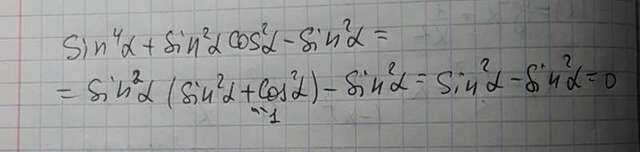 Sin⁴α + Sin²α cos²α - Sin²α =
= Sin²α (Sin²α + Cos²α) - Sin²α = Sin²α - Sin²α = 0
"1